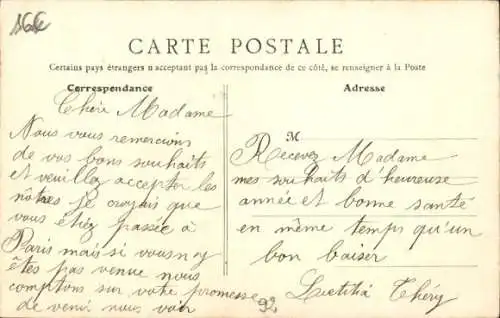 CARTE POSTALE
Certains pays étrangers n'acceptant pas la correspondance de ce côté, se renseigner à la Poste
Correspondance
Chère Madame
Nous vous remercions
de vos bons souhaits
et veuillez accepter les
nôtres je croyais que
vous étiez passée à
Paris mais si vous n'y
êtes pas venue nous
comptons sur votre promesse
de venir nous voir
Adresse
M
Recevez Madame
mes souhaits d'heureuse
année et bonne santé
en même temps qu'un
bon baiser
Lætitia Théry
92